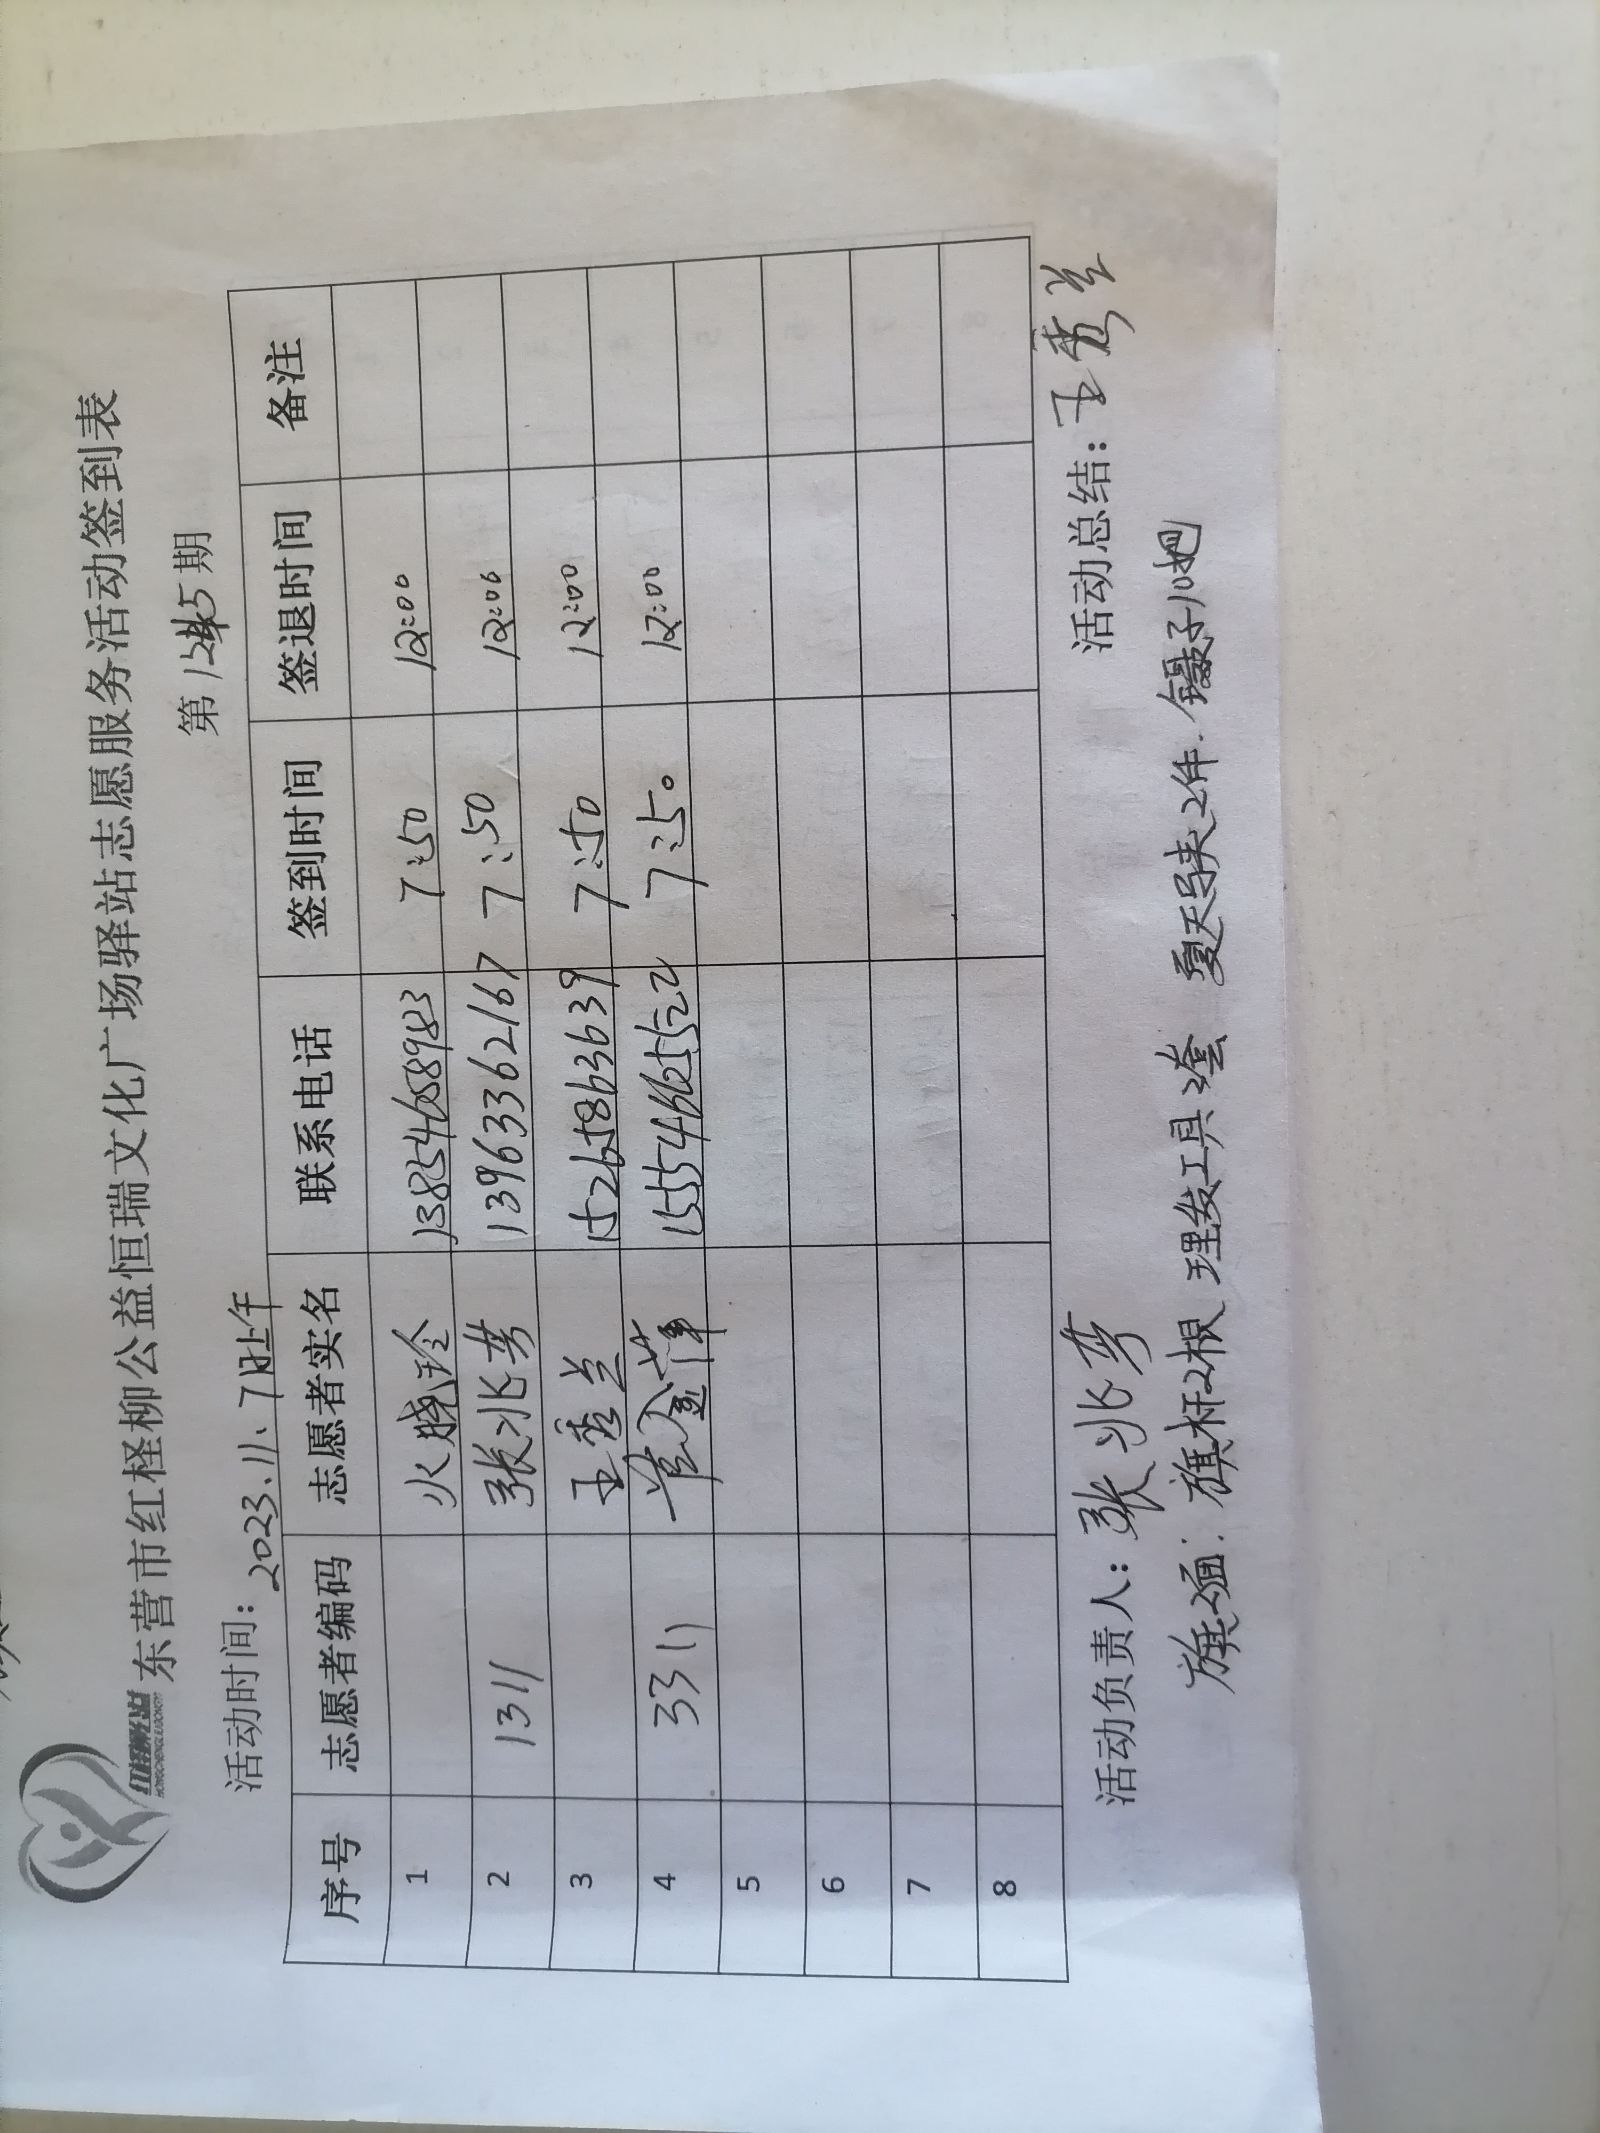 东营市红柽柳公益恒瑞文化广场驿站志愿服务活动签到表
活动时间：2023.11.7日上午 第1245期
序号 志愿者编码 志愿者实名 联系电话 签到时间 签退时间 备注
1 火晓玲 13854658983 7:50 12:00
2 1311 张兆芬 13963362167 7:50 12:00
3 王秀兰 15265863639 7:50 12:00
4 3311 黄金萍 15554662552 7:50 12:00
5
6
7
8
活动负责人：张兆芬 活动总结：王秀兰
旗2面. 旗杆2根 理发工具2套 夏天马夹2件. 镊子10把